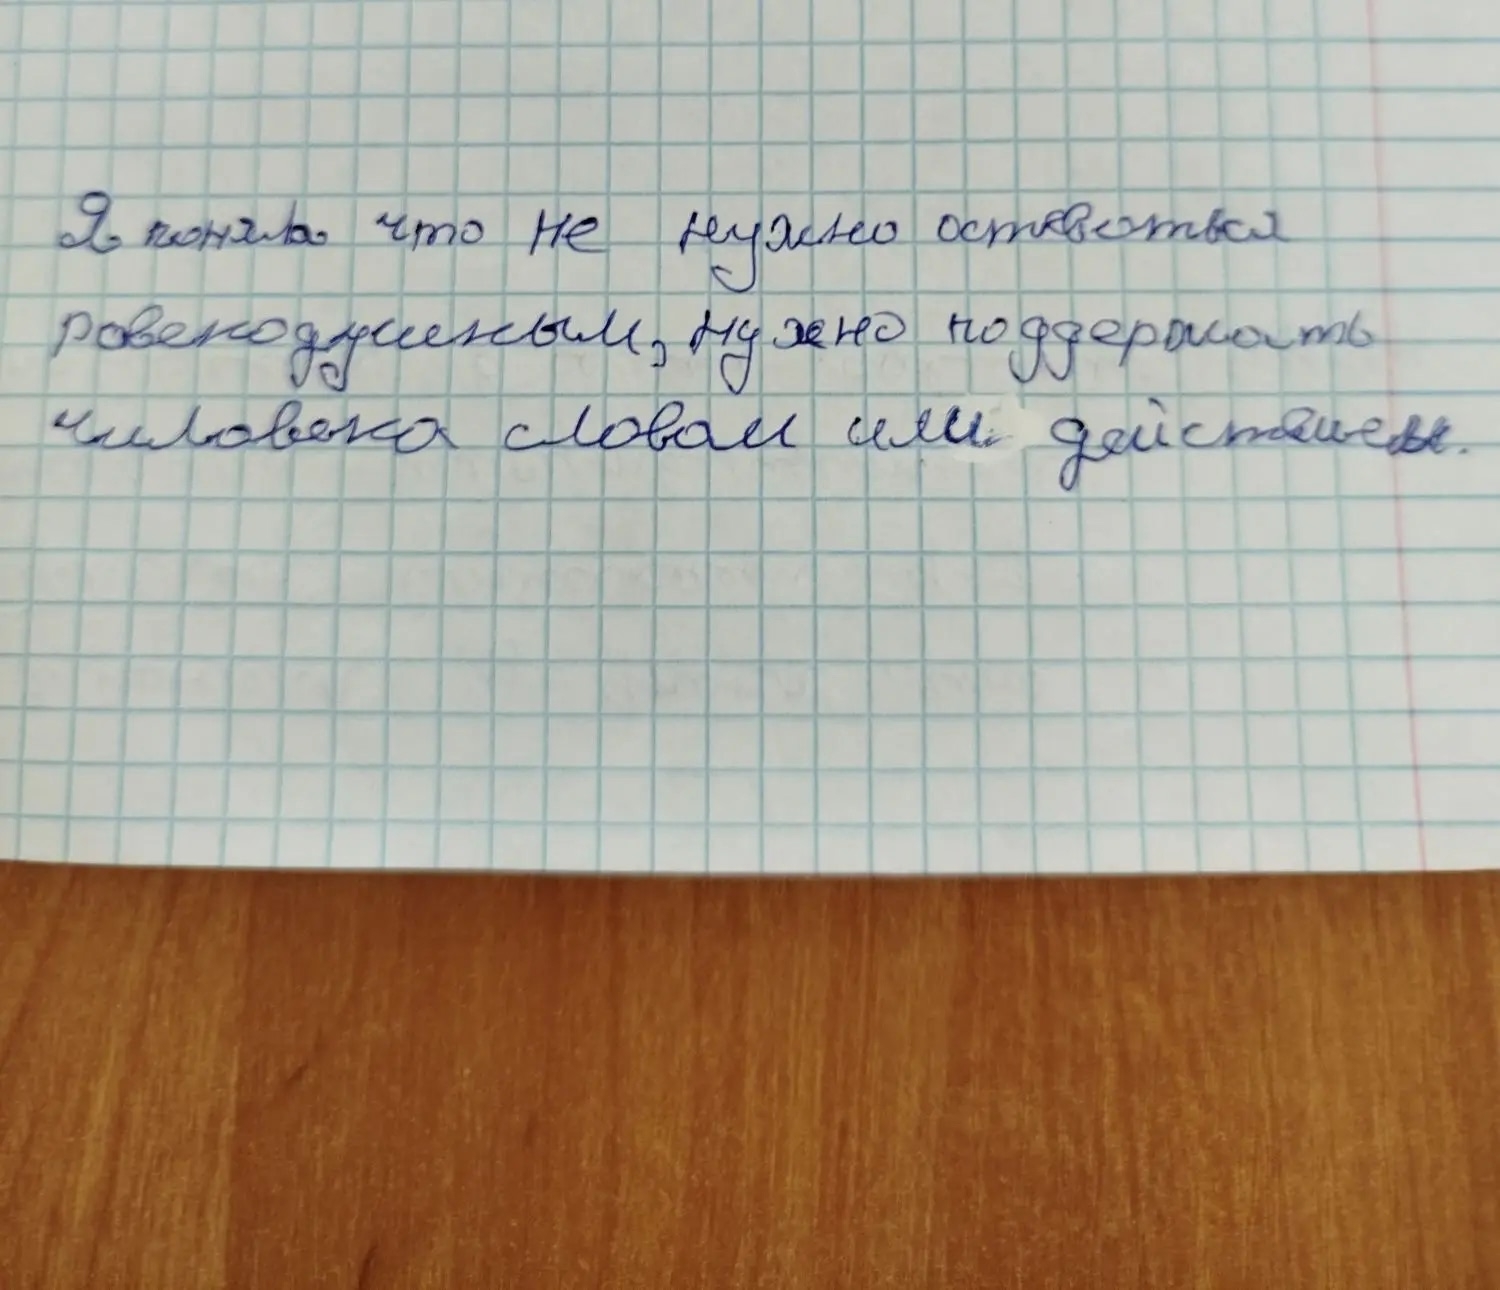 Я поняла что не нужно оставаться
равенодушным, нужно поддержать
чиловека словам или действием.